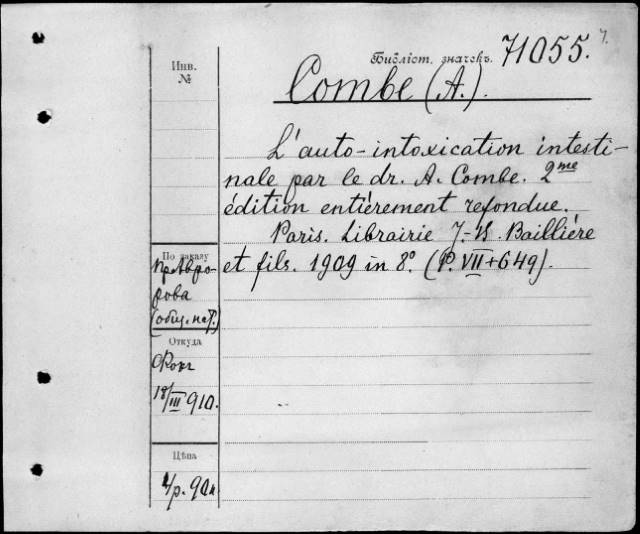 7.
Библіот. значекъ. 71055.
Инв.
№
Combe (A.).
L'auto-intoxication intesti-
nale par le dr. A. Combe. 2me
édition entièrement refondue.
Paris. Librairie J.-B. Baillière
et fils. 1909 in 8°. (P. VII+649).
По заказу
пр. Авро-
рова
(общ. пат.)
Откуда
18/III 910.
Цѣна
4/р. 90к